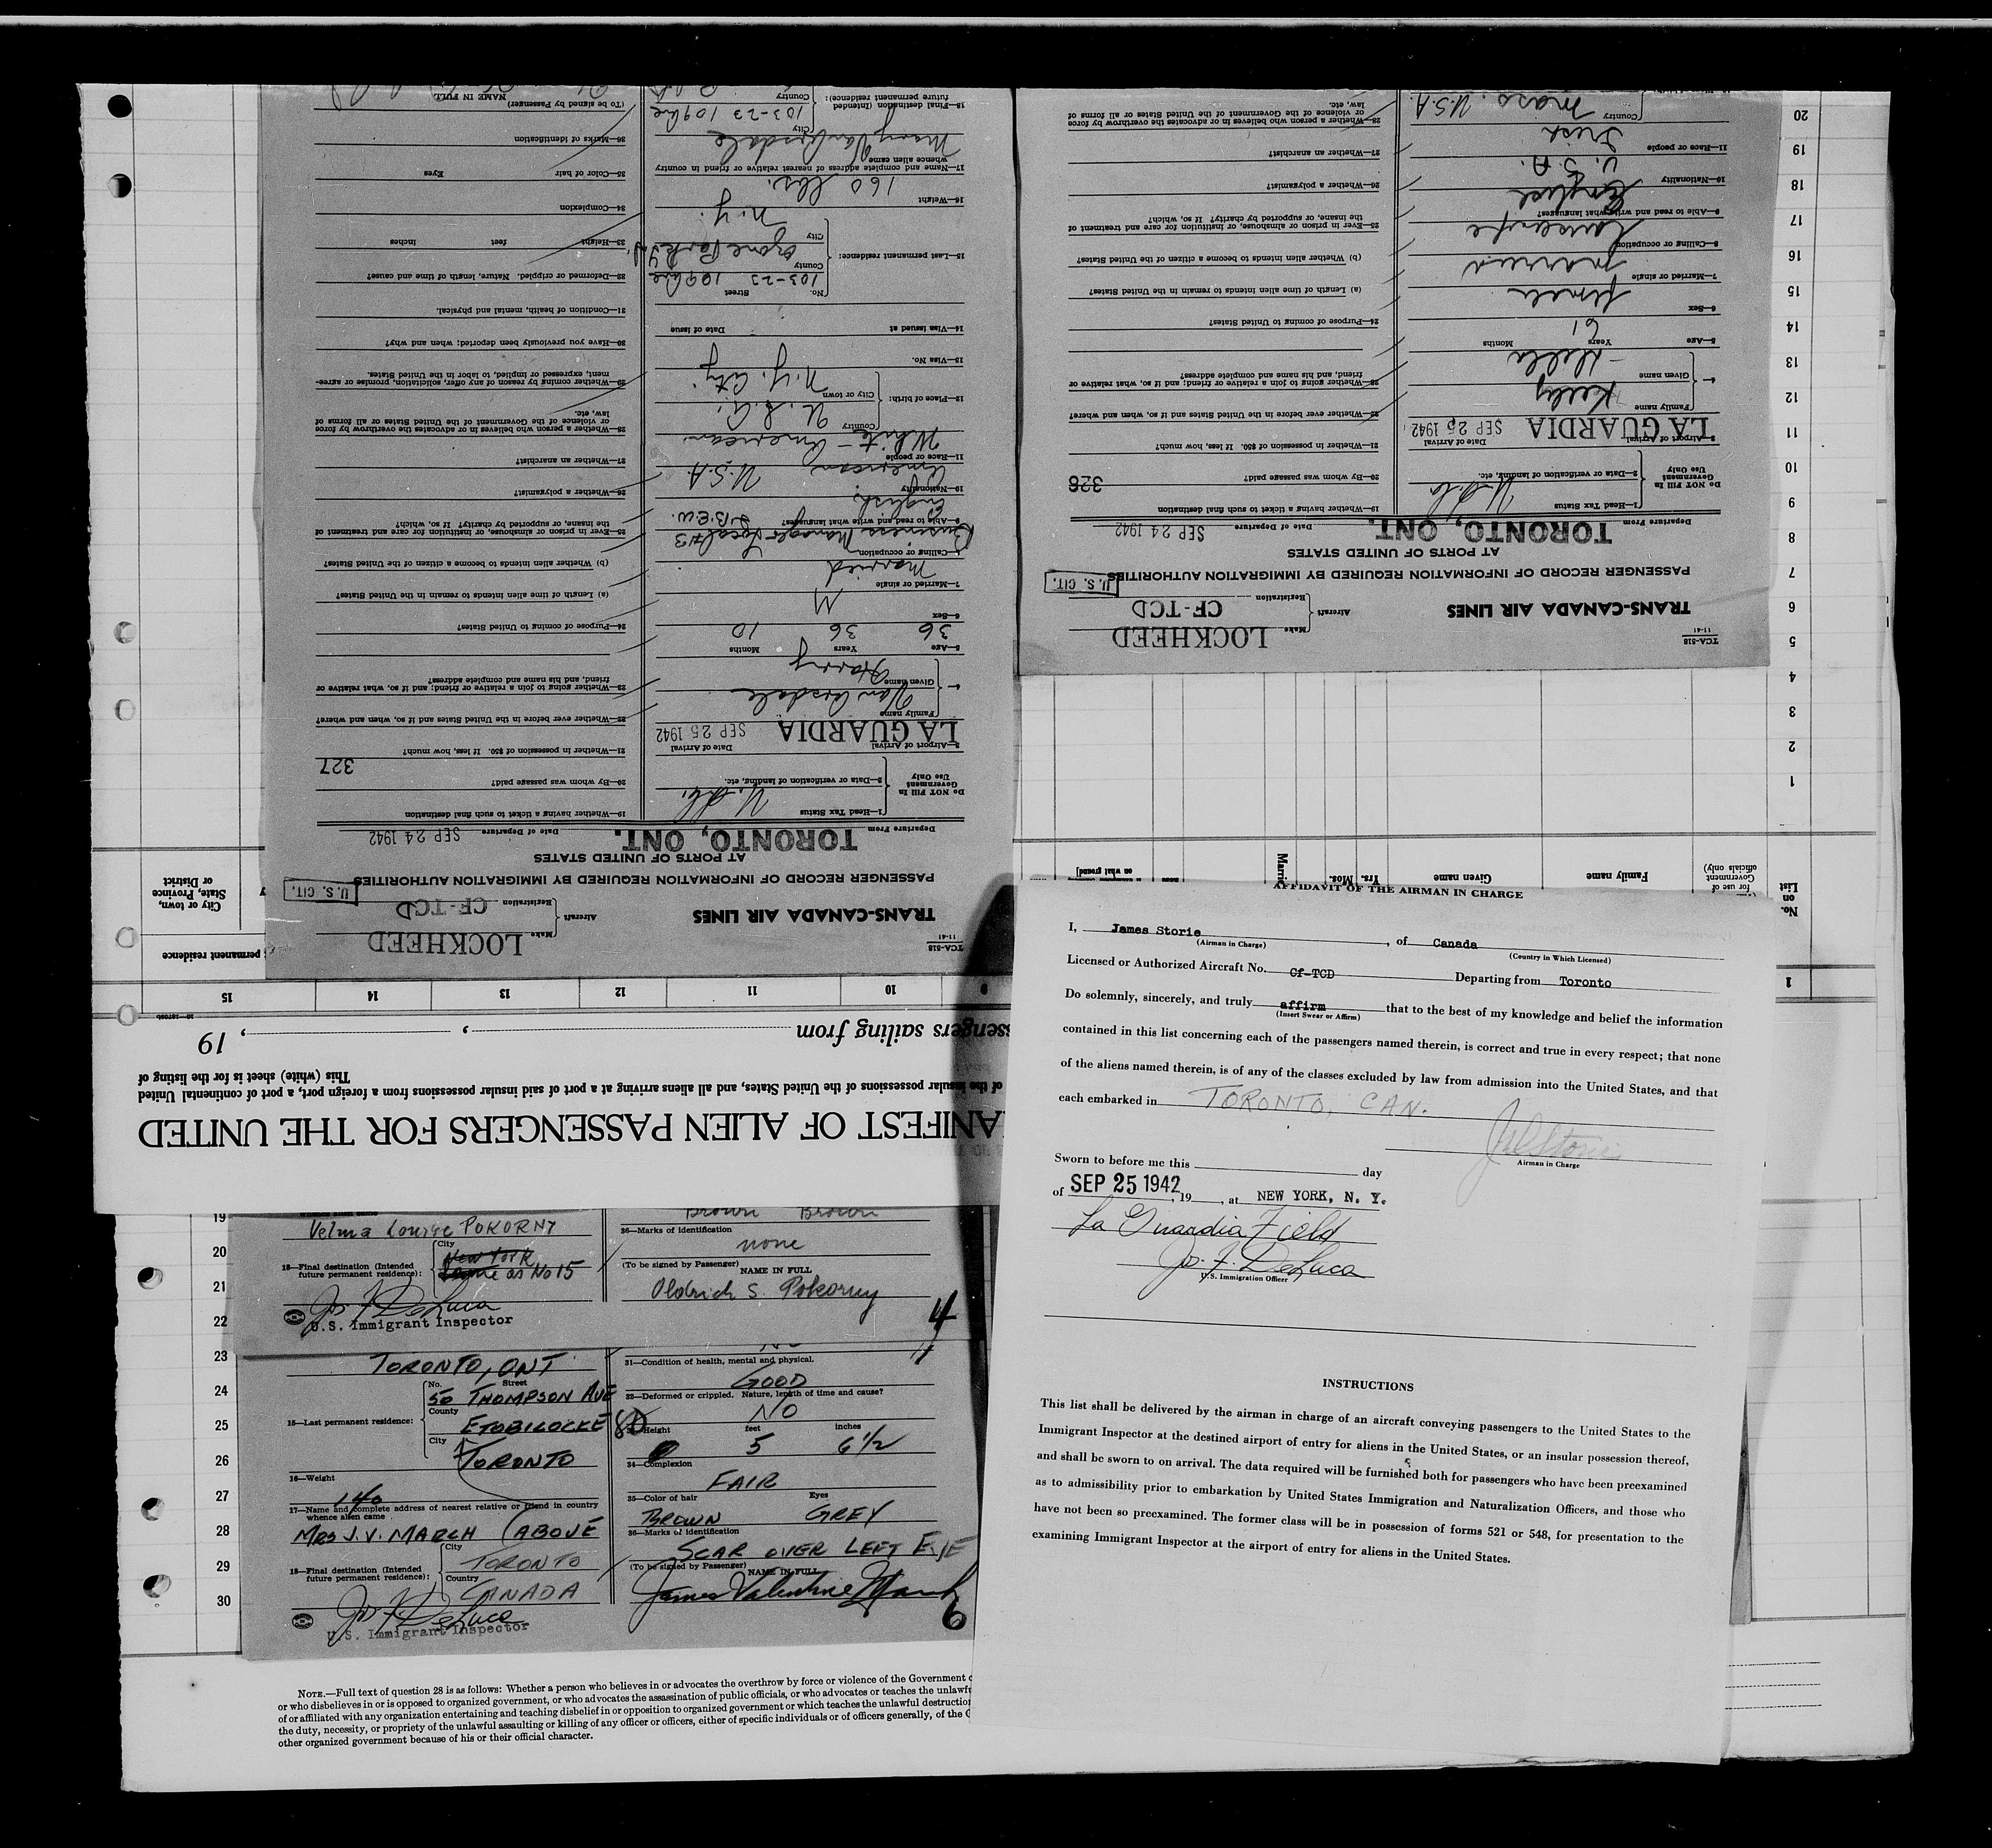 TCA-518
11-41
TRANS-CANADA AIR LINES
Aircraft
Make LOCKHEED
Registration CF-TCD
PASSENGER RECORD OF INFORMATION REQUIRED BY IMMIGRATION AUTHORITIES
U. S. CIT.
AT PORTS OF UNITED STATES
Departure From TORONTO, ONT. Date of Departure SEP 24 1942
DO NOT FILL IN
Government
Use Only
1—Head Tax Status
2—Data or verification of landing, etc.
3—Airport of Arrival LA GUARDIA Date of Arrival SEP 25 1942
4— Family name Van Arsdale
Given name Harry
5—Age 36 Years 36 Months 10
6—Sex M
7—Married or single Married
8—Calling or occupation Business Manager Local #3
I.B.E.W.
9—Able to read and write what languages? English
10—Nationality American U.S.A.
11—Race or people White - American
12—Place of birth: Country U.S.A.
City or town N.Y. City
13—Visa No.
14—Visa issued at Date of issue
15—Last permanent residence:
No. Street 103-23 109 Ave
County Ozone Park
City N.Y.
16—Weight 160 lbs.
17—Name and complete address of nearest relative or friend in country
whence alien came
Mary Van Arsdale
18—Final destination (Intended
future permanent residence):
City 103-23 109 Ave
Country
19—Whether having a ticket to such final destination
20—By whom was passage paid?
327
21—Whether in possession of $50. If less, how much?
22—Whether ever before in the United States and if so, when and where?
23—Whether going to join a relative or friend; and if so, what relative or
friend, and his name and complete address?
24—Purpose of coming to United States?
(a) Length of time alien intends to remain in the United States?
(b) Whether alien intends to become a citizen of the United States?
25—Ever in prison or almshouse, or institution for care and treatment of
the insane, or supported by charity? If so, which?
26—Whether a polygamist?
27—Whether an anarchist?
28—Whether a person who believes in or advocates the overthrow by force
or violence of the Government of the United States or all forms of
law, etc.
29—Whether coming by reason of any offer, solicitation, promise or agree-
ment, expressed or implied, to labor in the United States.
30—Have you previously been deported; when and why?
31—Condition of health, mental and physical.
32—Deformed or crippled. Nature, length of time and cause?
33—Height feet inches
34—Complexion
35—Color of hair Eyes
36—Marks of identification
(To be signed by Passenger)
NAME IN FULL
TCA-518
11-41
TRANS-CANADA AIR LINES
Aircraft
Make LOCKHEED
Registration CF-TCD
PASSENGER RECORD OF INFORMATION REQUIRED BY IMMIGRATION AUTHORITIES
U. S. CIT.
AT PORTS OF UNITED STATES
Departure From TORONTO, ONT. Date of Departure SEP 24 1942
DO NOT FILL IN
Government
Use Only
1—Head Tax Status
2—Data or verification of landing, etc.
3—Airport of Arrival LA GUARDIA Date of Arrival SEP 25 1942
4— Family name Kelly
Given name
5—Age 61 Years Months
6—Sex female
7—Married or single married
8—Calling or occupation Housewife
9—Able to read and write what languages? English
10—Nationality U.S.A.
11—Race or people Irish
Country Mass. U.S.A.
19—Whether having a ticket to such final destination
20—By whom was passage paid?
326
21—Whether in possession of $50. If less, how much?
22—Whether ever before in the United States and if so, when and where?
23—Whether going to join a relative or friend; and if so, what relative or
friend, and his name and complete address?
24—Purpose of coming to United States?
(a) Length of time alien intends to remain in the United States?
(b) Whether alien intends to become a citizen of the United States?
25—Ever in prison or almshouse, or institution for care and treatment of
the insane, or supported by charity? If so, which?
26—Whether a polygamist?
27—Whether an anarchist?
28—Whether a person who believes in or advocates the overthrow by force
or violence of the Government of the United States or all forms of
law, etc.
MANIFEST OF ALIEN PASSENGERS FOR THE UNITED
of the insular possessions of the United States, and all aliens arriving at a port of said insular possessions from a foreign port, a port of continental United
This (white) sheet is for the listing of
sengers sailing from , , 19
1 9 10 11 12 13 14 15
No.
on
List
for use of
Government
officials only)
Family name
Given name
Yrs. Mos.
what ground]
permanent residence
City or town,
State, Province
or District
1
2
3
4
5
6
7
8
9
10
11
12
13
14
15
16
17
18
19
20
AFFIDAVIT OF THE AIRMAN IN CHARGE
I, James Storie, of Canada
(Airman in Charge) (Country in Which Licensed)
Licensed or Authorized Aircraft No. Cf-TCD Departing from Toronto
Do solemnly, sincerely, and truly affirm that to the best of my knowledge and belief the information
(Insert Swear or Affirm)
contained in this list concerning each of the passengers named therein, is correct and true in every respect; that none
of the aliens named therein, is of any of the classes excluded by law from admission into the United States, and that
each embarked in TORONTO, CAN.
Airman in Charge
Sworn to before me this day
of SEP 25 1942, 19 , at NEW YORK, N. Y.
La Guardia Field
Jos. F. DeLuca
U.S. Immigration Officer
INSTRUCTIONS
This list shall be delivered by the airman in charge of an aircraft conveying passengers to the United States to the
Immigrant Inspector at the destined airport of entry for aliens in the United States, or an insular possession thereof,
and shall be sworn to on arrival. The data required will be furnished both for passengers who have been preexamined
as to admissibility prior to embarkation by United States Immigration and Naturalization Officers, and those who
have not been so preexamined. The former class will be in possession of forms 521 or 548, for presentation to the
examining Immigrant Inspector at the airport of entry for aliens in the United States.
19
20
21
22
23
24
25
26
27
28
29
30
Velma Louise POKORNY
18—Final destination (Intended
future permanent residence):
City New York
Same as No 15
Jos F DeLuca
U.S. Immigrant Inspector
Brown Brown
36—Marks of identification
none
(To be signed by Passenger)
NAME IN FULL
Oldrich S. Pokorny
4
TORONTO, ONT
15—Last permanent residence:
No. Street
50 THOMPSON AVE
County
ETOBICOCKE
City
TORONTO
16—Weight
140
17—Name and complete address of nearest relative or friend in country
whence alien came
MRS J. V. MARCH (ABOVE
18—Final destination (Intended
future permanent residence):
City TORONTO
Country CANADA
Jos F DeLuca
U.S. Immigrant Inspector
31—Condition of health, mental and physical.
GOOD
32—Deformed or crippled. Nature, length of time and cause?
NO
33—Height feet inches
5 6 1/2
34—Complexion
FAIR
35—Color of hair Eyes
BROWN GREY
36—Marks of identification
SCAR OVER LEFT EYE
(To be signed by Passenger)
NAME IN FULL
James Valentine March
6
NOTE.—Full text of question 28 is as follows: Whether a person who believes in or advocates the overthrow by force or violence of the Government
or who disbelieves in or is opposed to organized government, or who advocates the assassination of public officials, or who advocates or teaches the unlawf
of or affiliated with any organization entertaining and teaching disbelief in or opposition to organized government or which teaches the unlawful destruction
the duty, necessity, or propriety of the unlawful assaulting or killing of any officer or officers, either of specific individuals or of officers generally, of the
other organized government because of his or their official character.